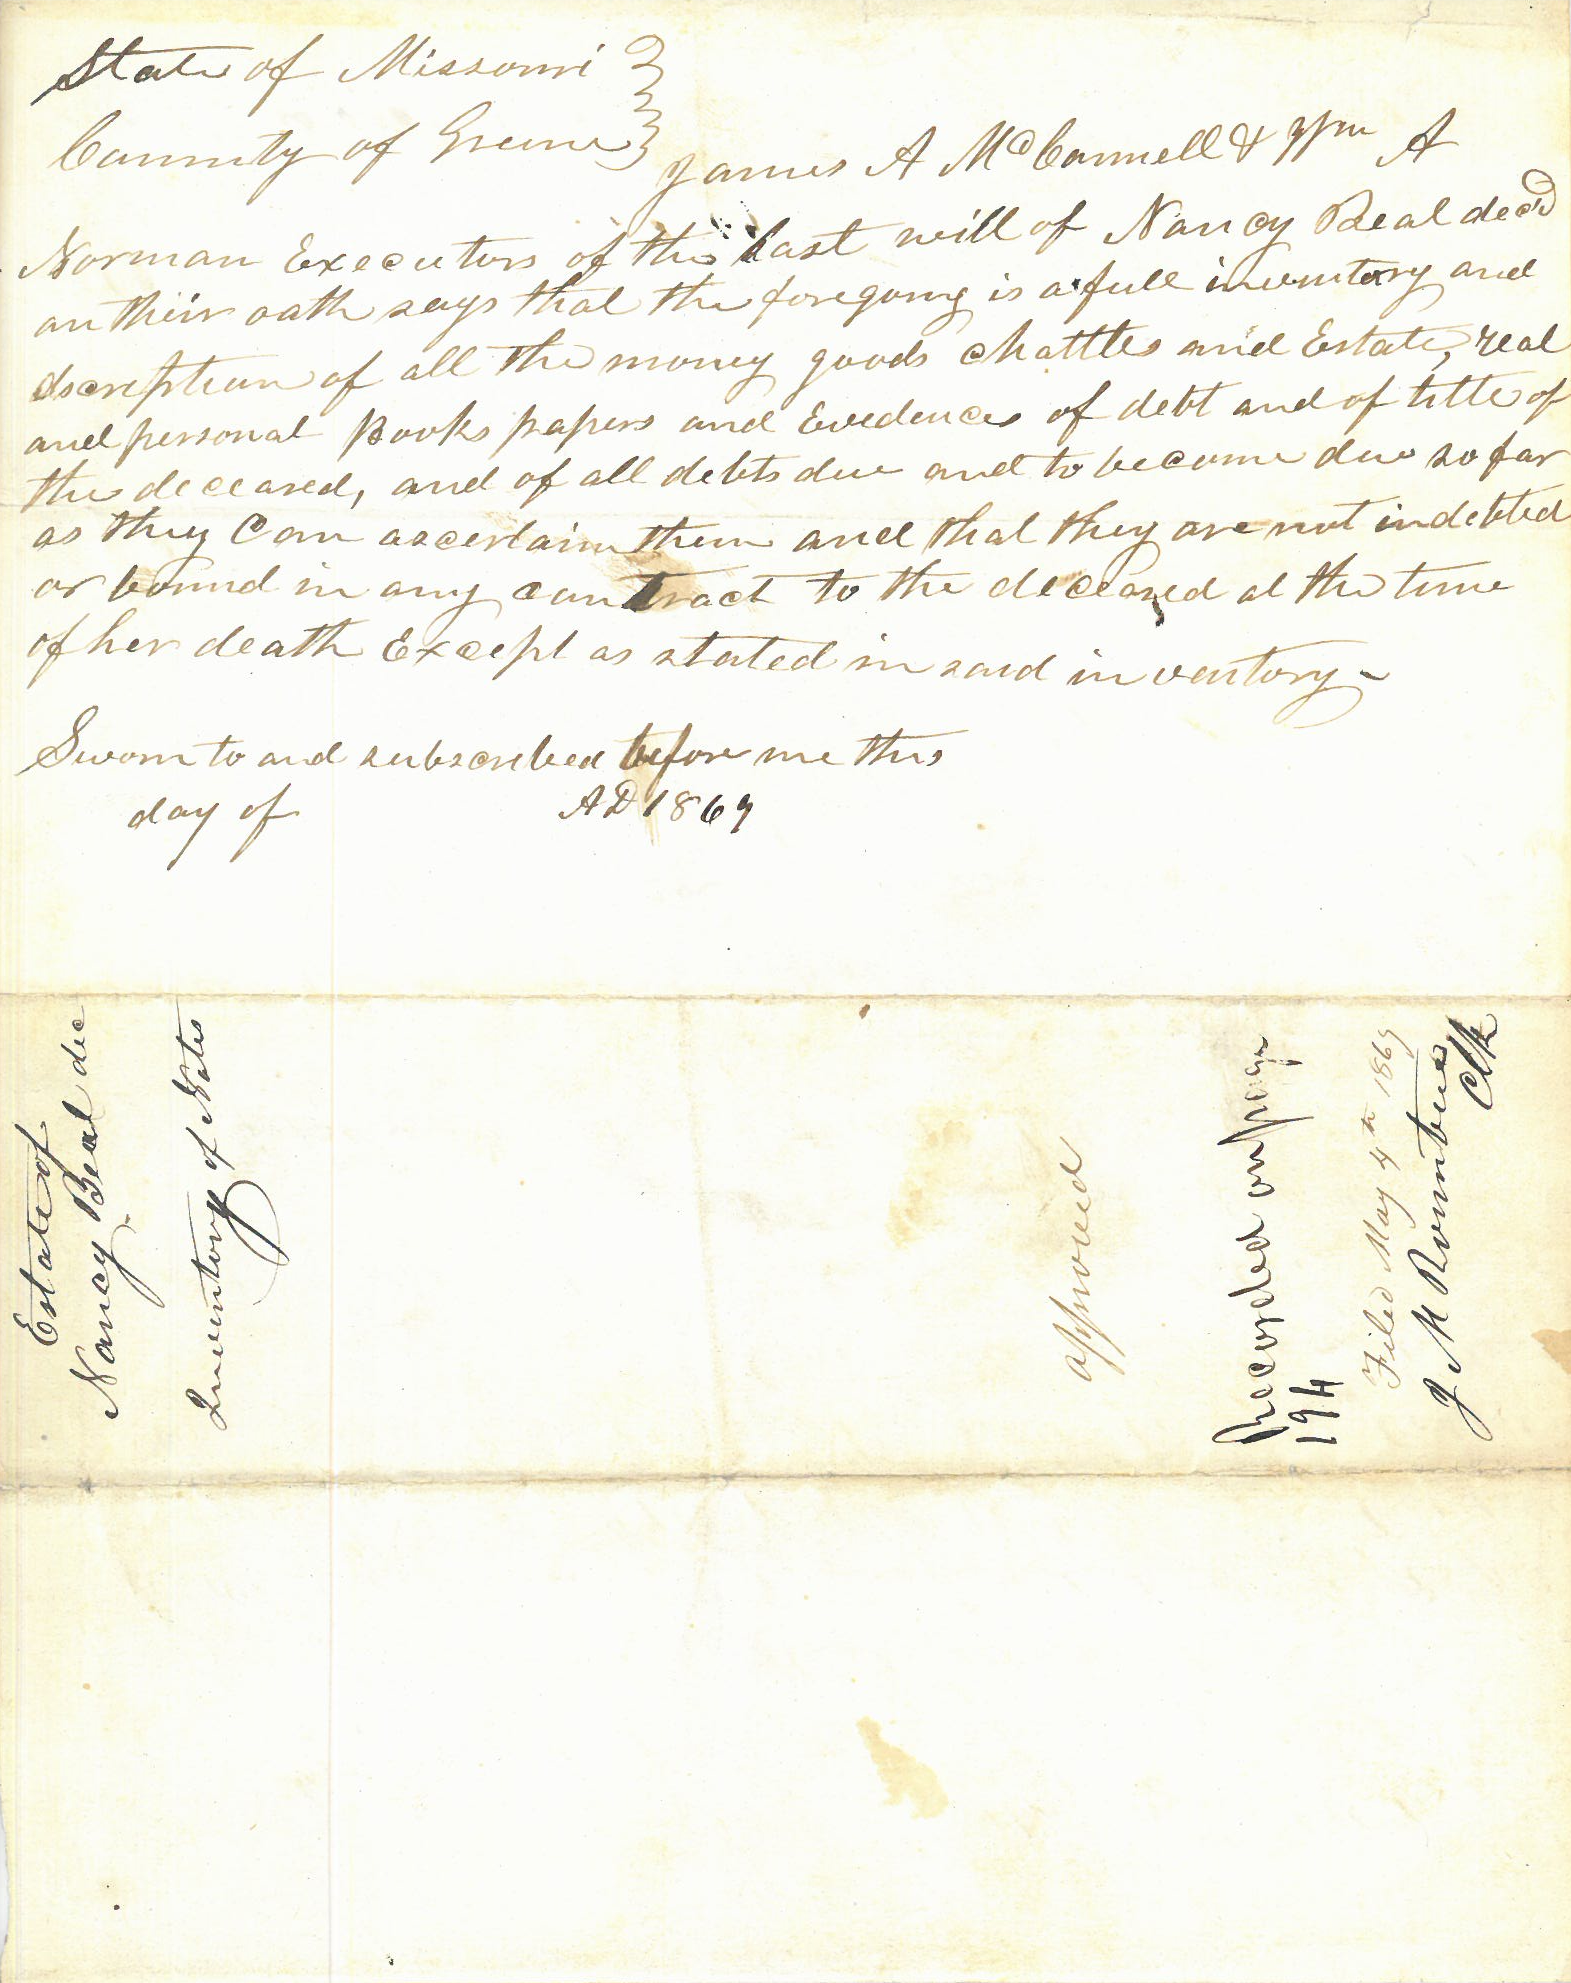 State of Missouri
County of Greene
James A McConnell & Wm A
Norman Executors of the last will of Nancy Beal decd
on their oath says that the foregoing is a full inventory and
discreption of all the money goods chattles and Estate, real
and personal Books papers and Evedences of debt and of title of
the deceased, and of all debts due and to become due so far
as they Can ascertain them and that they are not indebted
or bound in any contract to the deceased at the time
of her death Except as stated in said inventory -
Sworn to and subscribed before me this
day of AD 1869
Estate of
Nancy Beal dec
Inventory of Notes
approved
Recorded on page
194
Filed May 4th 1869
J M Rountree
Clk